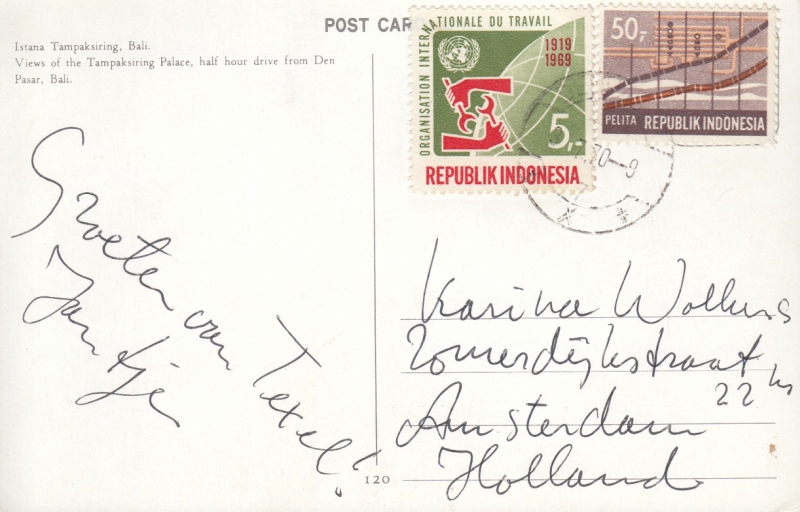 POST CAR
Istana Tampaksiring, Bali.
Views of the Tampaksiring Palace, half hour drive from Den
Pasar, Bali.
ORGANISATION INTERNATIONALE DU TRAVAIL
1919
1969
5,-
REPUBLIK INDONESIA
50,-
PELITA REPUBLIK INDONESIA
70-9
Groeten van Texel!
Jantje
Karina Wolkers
Zomerdijkstraat
22 hs
Amsterdam
Holland
120